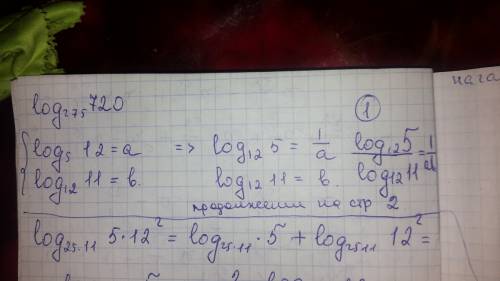 log₂₇₅ 720
①
{ log₅ 12 = a => log₁₂ 5 = 1/a log₁₂ 5 = 1/a
log₁₂ 11 = в. log₁₂ 11 = в. log₁₂ 11
продолжении на стр 2
log₂₅.₁₁ 5·12² = log₂₅.₁₁·5 + log₂₅.₁₁ 12² =
нача